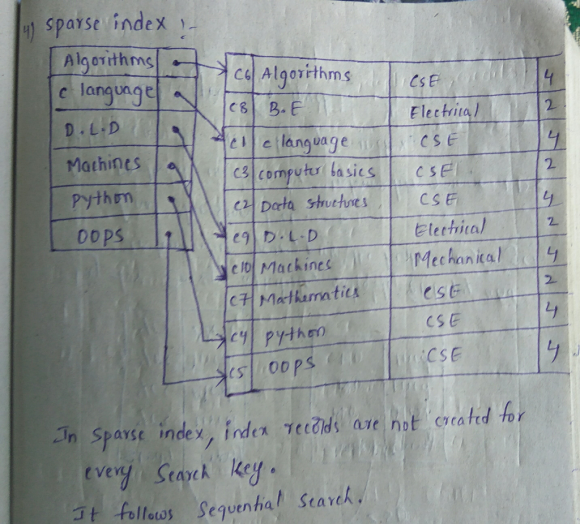 4) sparse index :-
Algorithms
c language
D.L.D
Machines
python
OOPS
C6 Algorithms CSE 4
C8 B.E Electrical 2
C1 c language CSE 4
C3 computer basics CSE 2
C2 Data structures CSE 4
C9 D.L.D Electrical 2
C10 Machines Mechanical 4
C7 Mathematics CSE 2
C4 python CSE 4
C5 OOPS CSE 4
In sparse index, index records are not created for
every Search Key.
It follows Sequential Search.